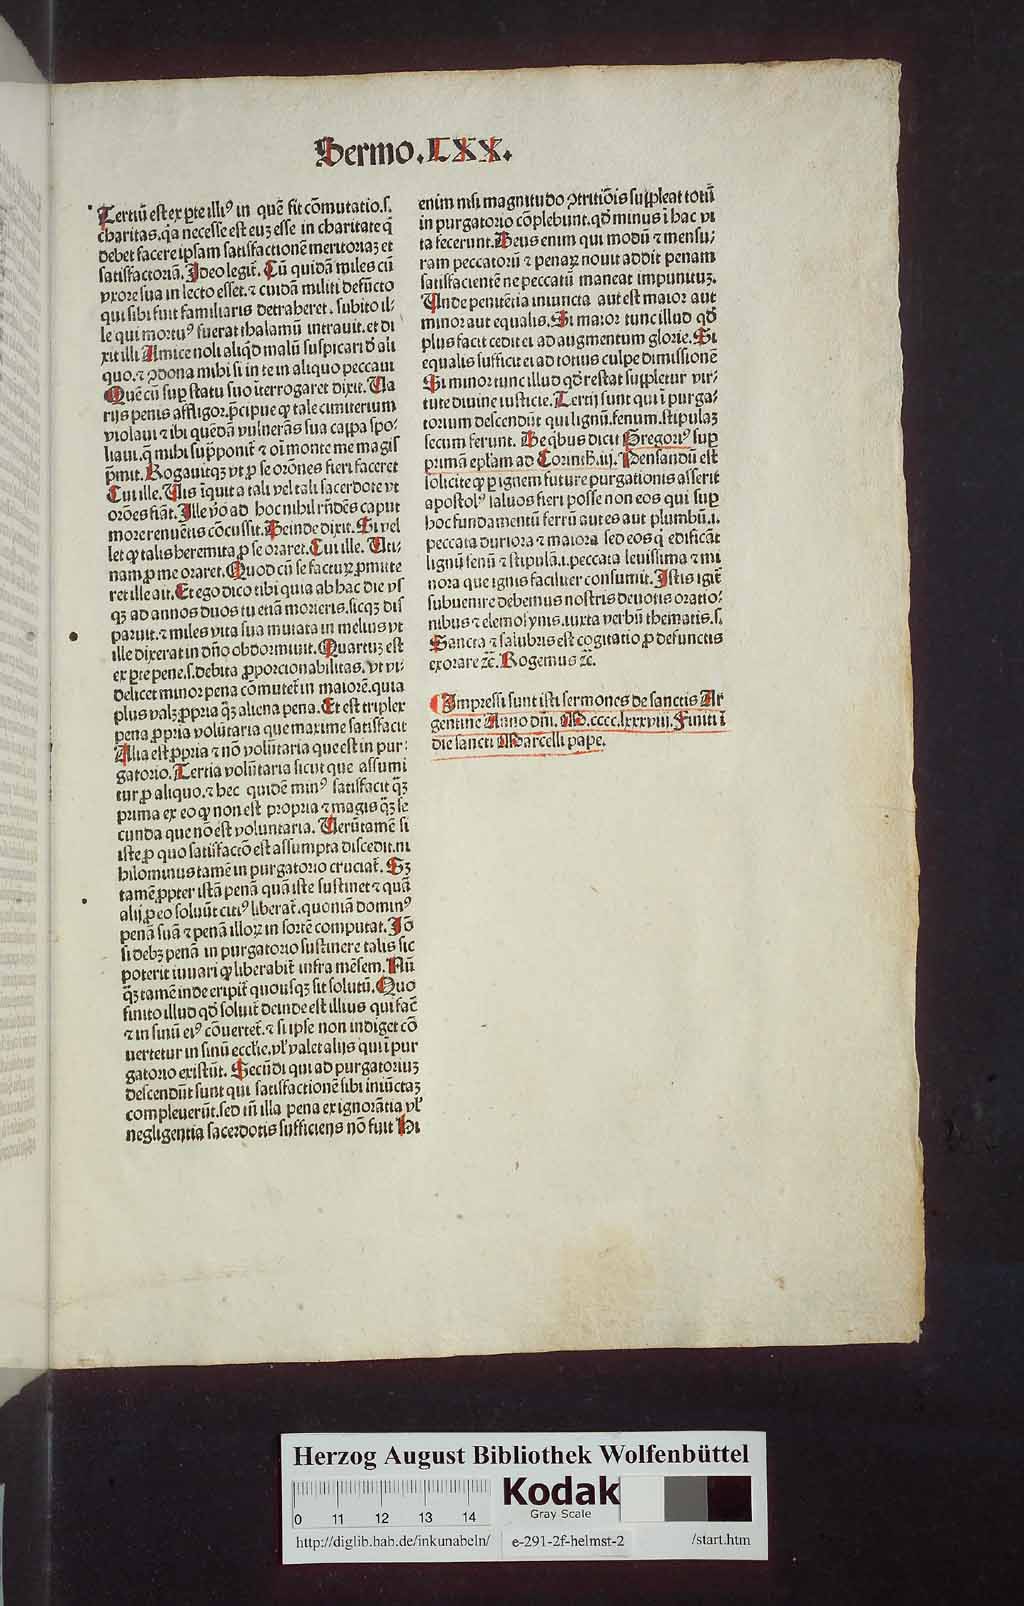 Sermo.LXX.
Tertiū est ex ꝑte illiꝰ in quē fit cōmutatio.s.
charitas.qꝛa necesse est euꝫ esse in charitate q̄
debet facere ipsam satisfactionē meritoriaꝫ et
satisfactoriā. Ideo legit̄. Cū quidā miles cū
vxore sua in lecto esset.⁊ cuidā militi defūcto
qui sibi fuit familiaris detraheret. subito il-
le qui mortuꝰ fuerat thalamū intrauit.et di
xit illi Amice noli aliq̄d malū suspicari ð ali
quo.⁊ ꝑdona mihi si in te in aliquo peccaui
Quē cū suꝑ statu suo īterrogaret dixit. Va
rijs penis affligor.p̄cipue ꝙ tale cimiterium
violaui ⁊ ibi quēdā vulnerās sua cappa spo-
liaui.q̄ mihi supponit̄ ⁊ oī monte me magis
p̄mit. Rogauitqꝫ vt ꝓ se orōnes fieri faceret
Cui ille. Vis īquit a tali vel tali sacerdote vt
orōes fiāt. Ille v̄o ad hoc nihil rn̄dēs caput
more renuētis cōcussit. Deinde dixit. Si vel
let ꝙ talis heremita ꝓ se oraret. Cui ille. Uti-
nam ꝓ me oraret. Quod cū se facturꝫ ꝓmitte
ret ille ait. Et ego dico tibi quia ab hac die vs
qꝫ ad annos duos tu etiā morieris.sicqꝫ dis
paruit.⁊ miles vita sua mutata in melius vt
ille dixerat in dn̄o obdormiuit. Quartuꝫ est
ex ꝑte pene.s.debita ꝓporcionabilitas. vt vi-
delicet minor pena cōmutet̄ in maiorē.quia
plus valꝫ ꝓpria q̄ꝫ aliena pena. Et est triplex
pena ꝓpria volūtaria que maxime satisfacit
Alia est ꝓpria ⁊ nō volūtaria que est in pur-
gatorio. Tertia volūtaria sicut que assumi
tur ꝓ aliquo.⁊ hec quidē minꝰ satisfacit q̄ꝫ
prima ex eo ꝙ non est propria ⁊ magis q̄ꝫ se
cunda que nō est voluntaria. Uerūtamē si
iste ꝓ quo satisfactō est assumpta discedit.ni
hilominus tamē in purgatorio cruciat̄. Sꝫ
tamē ꝓpter istā penā quā iste sustinet ⁊ quā
alij ꝓ eo soluūt citiꝰ liberat̄.quoniā dominꝰ
penā suā ⁊ penā illoꝝ in sortē computat. Iō
si debꝫ penā in purgatorio sustinere talis sic
poterit iuuari ꝙ liberabit̄ infra mēsem. Nū
q̄ꝫ tamē inde eripit̄ quousqꝫ sit solutū. Quo
finito illud qd̄ soluit̄ deinde est illius qui fac̄
⁊ in sinū eiꝰ cōuertet̄.⁊ si ipse non indiget cō
uertetur in sinū eccl̄ie.vl̓ valet alijs qui ī pur
gatorio existūt. Secūdi qui ad purgatoriuꝫ
descendūt sunt qui satisfactionē sibi iniūctaꝫ
compleuerūt.sed in̄ illa pena ex ignorātia vl̓
negligentia sacerdotis sufficiens nō fuit Hi
enim nisi magnitudo ꝯtritiōis suppleat totū
in purgatorio cōplebunt.qd̄ minus ī hac vi
ta fecerunt. Deus enim qui modū ⁊ mensu-
ram peccatorū ⁊ penaꝝ nouit addit penam
satisfacientē ne peccatū maneat impunituꝫ.
Vnde penitētia iniuncta aut est maior aut
minor aut equalis. Si maior tunc illud qd̄
plus facit cedit ei ad augmentum glorie. Si
equalis sufficit ei ad totius culpe dimissionē
Si minor tunc illud qd̄ restat suppletur vir-
tute diuine iusticie. Tertij sunt qui ī purga-
torium descendūt qui lignū.fenum.stipulaꝫ
secum ferunt. De qͥbus dicit Gregoriꝰ suꝑ
primā epl̄am ad Corinth̄.iij. Pensandū est
solicite ꝙ ꝑ ignem future purgationis asserit
apostolꝰ saluos fieri posse non eos qui suꝑ
hoc fundamentū ferrū aut es aut plumbū.i.
peccata duriora ⁊ maiora sed eos q̄ edificāt
lignū fenū ⁊ stipulā.i.peccata leuissima ⁊ mi
nora que ignis faciliter consumit. Istis igit̄
subuenire debemus nostris deuotis oratio-
nibus ⁊ elemosynis.iuxta verbū thematis.s.
Sancta ⁊ salubris est cogitatio ꝓ defunctis
exorare ⁊c̄. Rogemus ⁊c̄.
Impressi sunt isti sermones de sanctis Ar
gentine Anno dn̄i. M.cccc.lxxxviii. Finiti ī
die sancti Marcelli pape.
Herzog August Bibliothek Wolfenbüttel
0 11 12 13 14
Kodak
Gray Scale
http://diglib.hab.de/inkunabeln/ e-291-2f-helmst-2 /start.htm